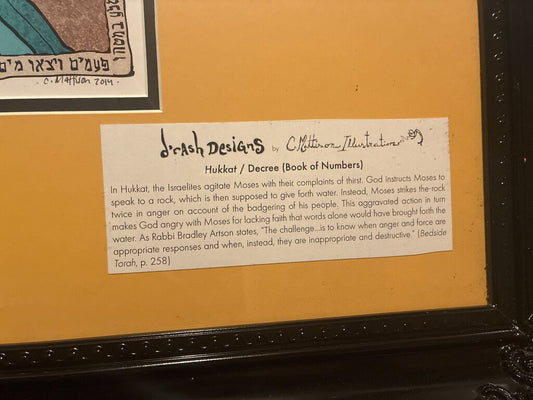 פעמים ויצאו מים
C. Mattison 2014
d'rash Designs by C. Mattison Illustrations
Hukkat / Decree (Book of Numbers)
In Hukkat, the Israelites agitate Moses with their complaints of thirst. God instructs Moses to
speak to a rock, which is then supposed to give forth water. Instead, Moses strikes the rock
twice in anger on account of the badgering of his people. This aggravated action in turn
makes God angry with Moses for lacking faith that words alone would have brought forth the
water. As Rabbi Bradley Artson states, "The challenge...is to know when anger and force are
appropriate responses and when, instead, they are inappropriate and destructive." (Bedside
Torah, p. 258)